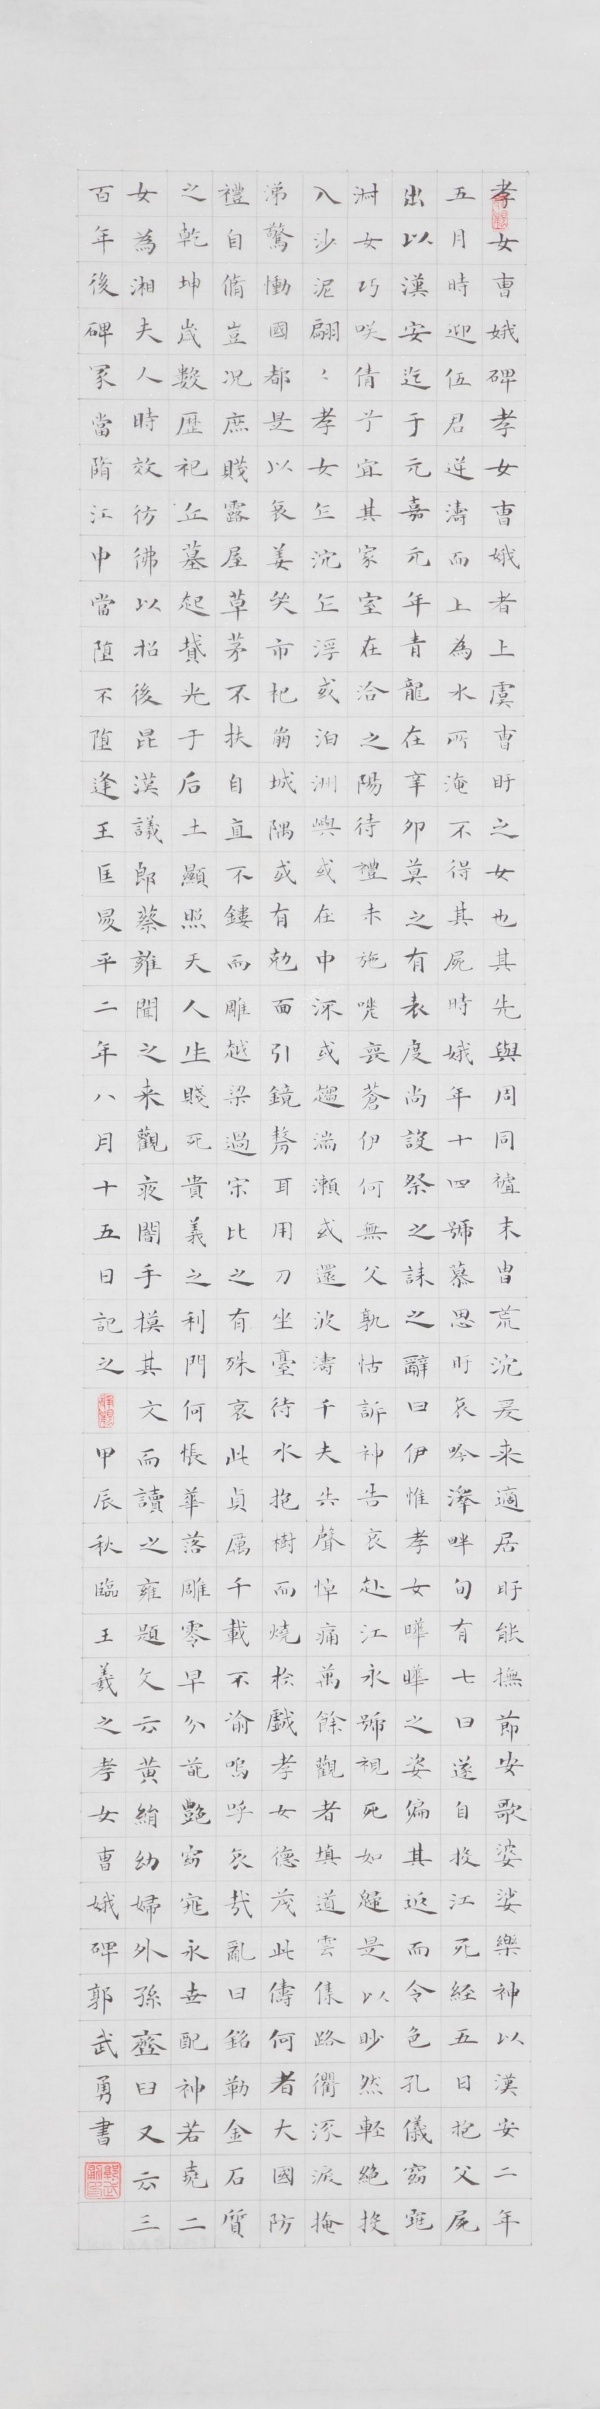 孝女曹娥碑孝女曹娥者上虞曹盱之女也其先與周同祖末胄荒沉爰来適居盱能撫節安歌婆娑樂神以漢安二年
五月時迎伍君逆濤而上為水所淹不得其屍時娥年十四號慕思盱哀吟澤畔旬有七日遂自投江死経五日抱父屍
出以漢安迄于元嘉元年青龍在辛卯莫之有表度尚設祭之誄之辭曰伊惟孝女曄曄之姿偏其返而令色孔儀窈窕
淑女巧咲倩兮宜其家室在洽之陽待禮未施嗟喪蒼伊何無父孰怙訴神告哀赴江永號視死如歸是以眇然輕絶投
入沙泥翩〻孝女乍沉乍浮或泊洲嶼或在中流或趨湍瀬或還波濤千夫共聲悼痛萬餘觀者填道雲集路衢流淚掩
涕驚慟國都是以哀姜哭市杞崩城隅或有勊面引鏡剺耳用刀坐臺待水抱樹而燒扵戲孝女德茂此儔何者大國防
禮自脩豈况庶賤露屋草茅不扶自直不鏤而雕越梁過宋比之有殊哀此貞厲千載不渝嗚呼哀哉亂曰銘勒金石質
之乾坤歲數歷祀丘墓起墳光于后土顯照天人生賤死貴義之利門何悵華落雕零早分葩艷窈窕永世配神若堯二
女為湘夫人時效彷彿以招後昆漢議郎蔡雍聞之来觀夜闇手摸其文而讀之雍題文云黄絹幼婦外孫齏臼又云三
百年後碑冢當隋江中當墮不墮逢王匡昇平二年八月十五日記之 甲辰秋臨王羲之孝女曹娥碑郭武勇書